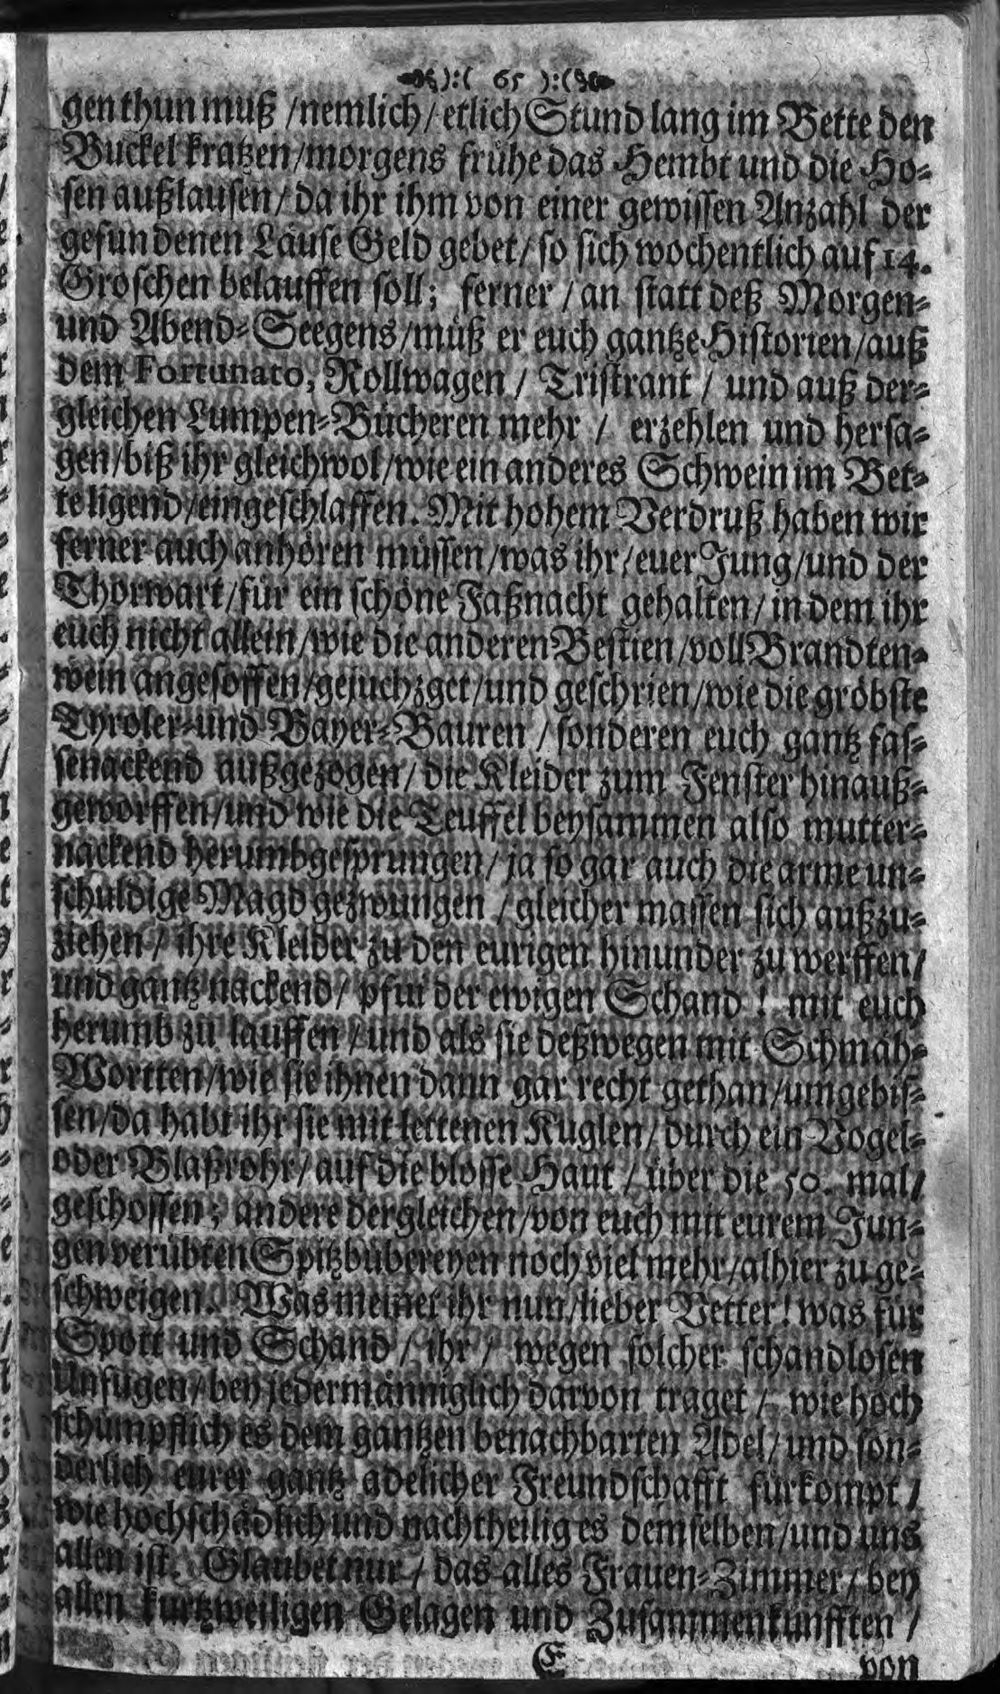 ):( 65 ):(
gen thun muß / nemlich / etlich Stund lang im Bette den
Buckel kratzen / morgens frühe das Hembt und die Ho-
sen außlausen / da ihr ihm von einer gewissen Anzahl der
gefundenen Läuse Geld gebet / so sich wochentlich auf 14.
Groschen belauffen soll; ferner / an statt deß Morgen-
und Abend-Seegens / müß er euch gantze Historien / auß
dem Fortunato, Rollwagen / Tristrant / und auß der-
gleichen Lumpen-Bücheren mehr / erzehlen und hersa-
gen / biß ihr gleichwol / wie ein anderes Schwein im Bet-
te ligend / eingeschlaffen. Mit hohem Verdruß haben wir
ferner auch anhören müssen / was ihr / euer Jung / und der
Thorwart / für ein schöne Faßnacht gehalten / in dem ihr
euch nicht allein / wie die anderen Bestien / voll Brandten-
wein angesoffen / gejuchzget / und geschrien / wie die gröbste
Tyroler- und Bayer-Bauren / sonderen euch gantz fas-
senackend außgezogen / die Kleider zum Fenster hinauß-
geworffen / und wie die Teuffel beysammen also mutter-
nackend herumbgesprungen / ja so gar auch die arme un-
schuldige Magd gezwungen / gleicher massen sich außzu-
ziehen / ihre Kleider zu den eurigen hinunder zu werffen /
und gantz nackend / pfui der ewigen Schand ! mit euch
herumb zu lauffen / und als sie deßwegen mit Schmäh-
Wortten / wie sie ihnen dann gar recht gethan / umgebis-
sen / da habt ihr sie mit lettenen Kuglen / durch ein Vogel-
oder Blaßrohr / auf die blosse Haut / über die 50. mal /
geschossen; andere dergleichen / von euch mit eurem Jun-
gen verübten Spitzbübereyen noch viel mehr / alhier zu ge-
schweigen. Was meinet ihr nun / lieber Vetter! was für
Spott und Schand / ihr / wegen solcher schandlosen
Unfugen / bey jedermänniglich darvon traget / wie hoch
schimpflich es dem gantzen benachbarten Adel / und son-
derlich eurer gantz adelicher Freundschafft fürkompt /
wie hochschädlich und nachtheilig es demselben / und uns
allen ist. Glaubet nur / das alles Frauen-Zimmer / bey
allen kurtzweiligen Gelagen und Zusammenkunfften /
E von